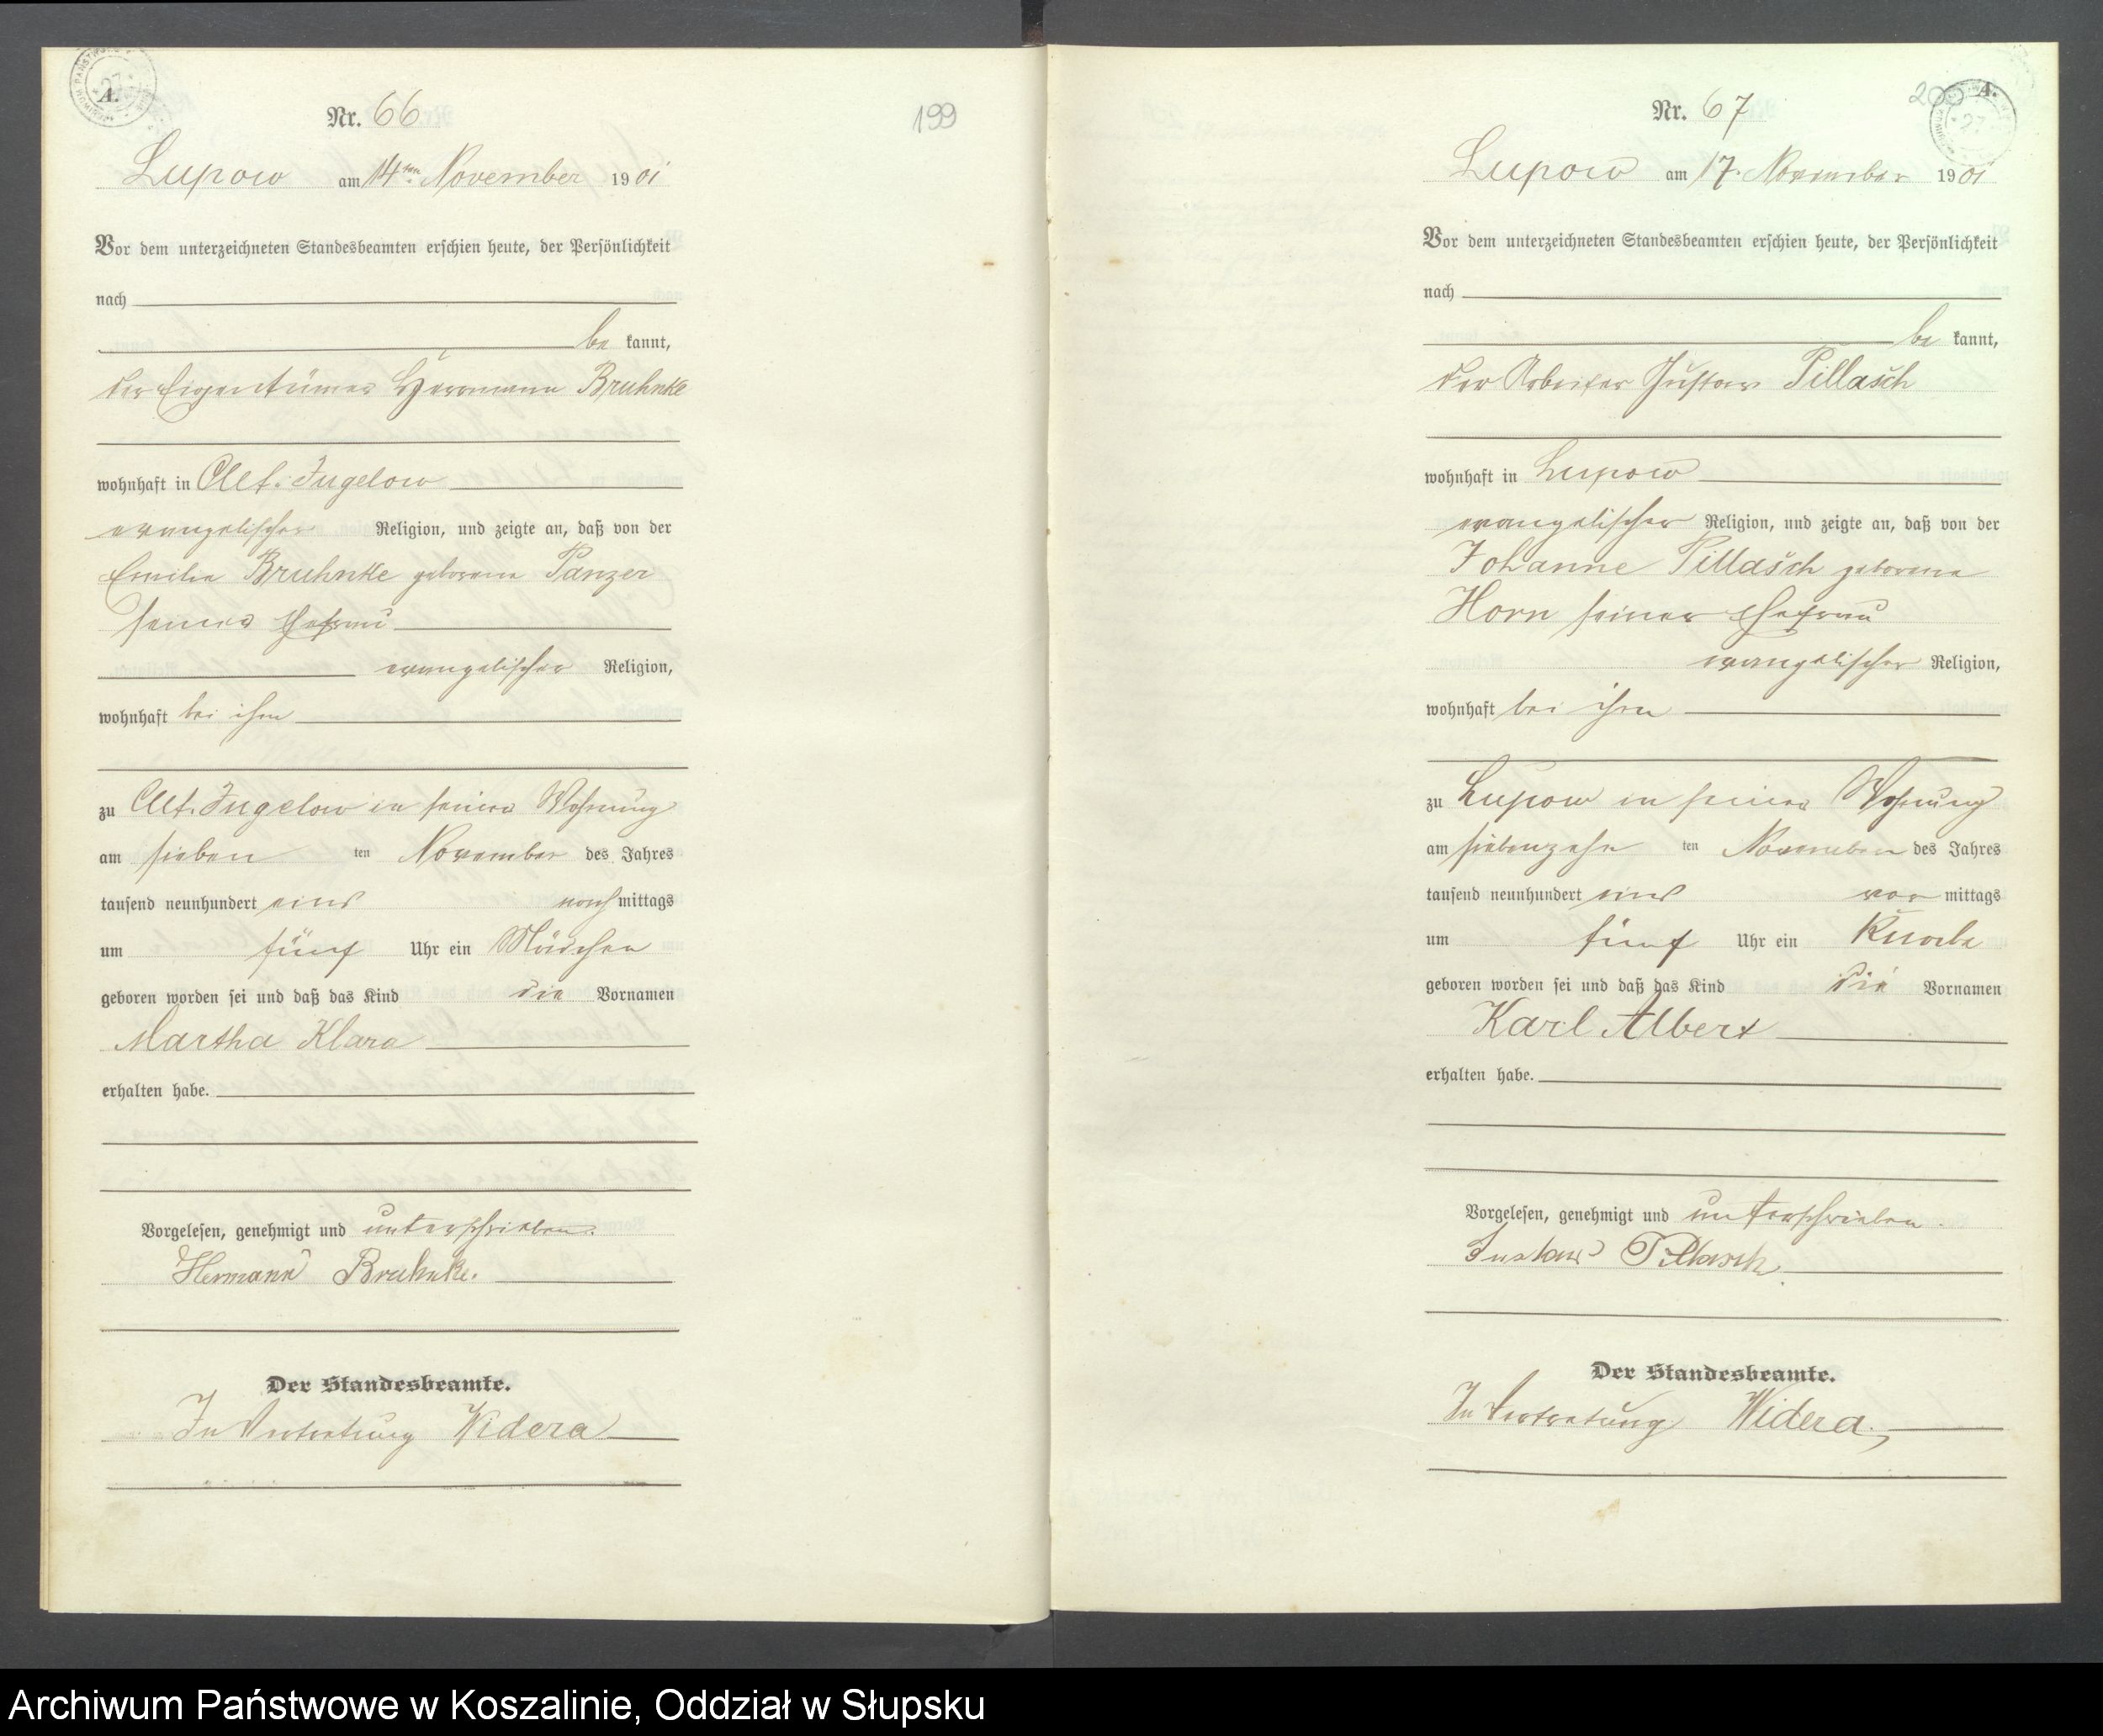 A.
Nr. 66
199
Lupow am 14ten November 1901
Vor dem unterzeichneten Standesbeamten erschien heute, der Persönlichkeit
nach
be kannt,
der Eigentümer Herrmann Bruhnke
wohnhaft in Alt. Jugelow
evangelischer Religion, und zeigte an, daß von der
Emilie Bruhnke geborene Panzer
seiner Ehefrau
evangelischer Religion,
wohnhaft bei ihm
zu Alt. Jugelow in seiner Wohnung
am sieben ten November des Jahres
tausend neunhundert eins nach mittags
um fünf Uhr ein Mädchen
geboren worden sei und daß das Kind die Vornamen
Martha Klara
erhalten habe.
Vorgelesen, genehmigt und unterschrieben.
Hermann Bruhnke.
Der Standesbeamte.
In Vertretung Widera
200 A.
Nr. 67
Lupow am 17. November 1901
Vor dem unterzeichneten Standesbeamten erschien heute, der Persönlichkeit
nach
be kannt,
der Arbeiter Gustav Pillasch
wohnhaft in Lupow
evangelischer Religion, und zeigte an, daß von der
Johanne Pillasch geborene
Horn seiner Ehefrau
evangelischer Religion,
wohnhaft bei ihm
zu Lupow in seiner Wohnung
am siebenzehn ten November des Jahres
tausend neunhundert eins vor mittags
um fünf Uhr ein Knabe
geboren worden sei und daß das Kind die Vornamen
Karl Albert
erhalten habe.
Vorgelesen, genehmigt und unterschrieben.
Gustav Pillasch
Der Standesbeamte.
In Vertretung Widera.
Archiwum Państwowe w Koszalinie, Oddział w Słupsku